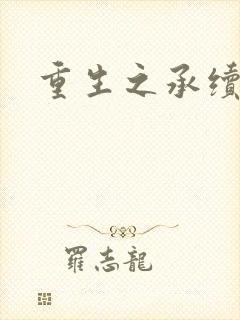 重生之承续
羅志龍